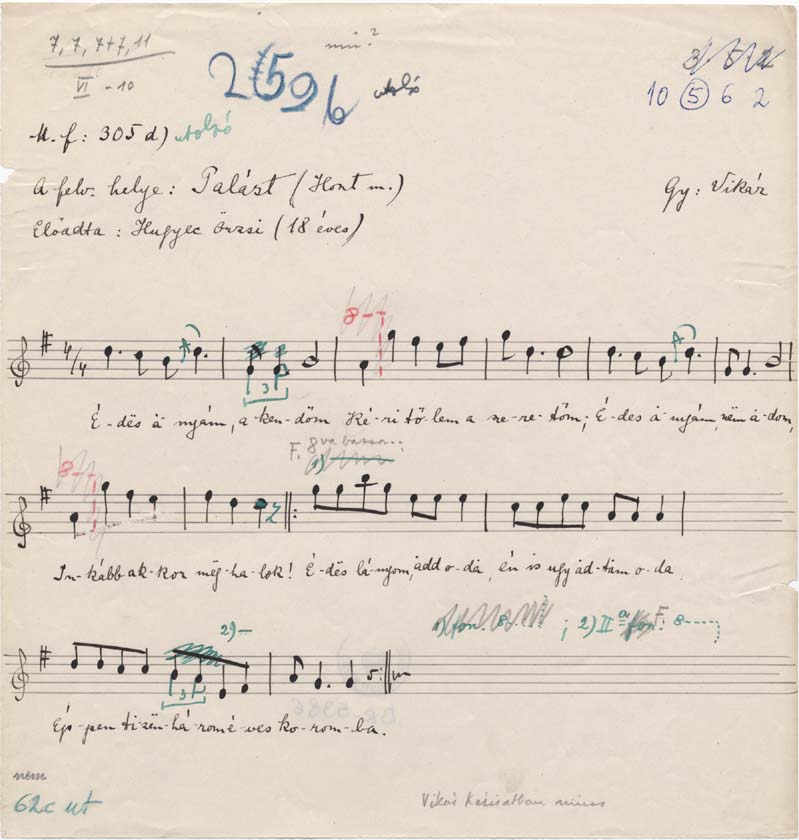 7, 7, 7+7, 11
VI - 10
2596 utolsó
10 5 6 2
M. f: 305 d) utolsó
A felv. helye: Palást (Hont m.)
Gy: Vikár
Előadta: Hugyec Örzsi (18 éves)
8--
4/4
3
É-dës á-nyám, a-ken-döm Ké-ri tő-lem a sze-re-tőm; É-des á-nyám, nëm á-dom,
F. 8va bassa
8--
In-kább ak-kor mëg-ha-lok! É-dës lá-nyom, add o-da, én is ugy ad-tam o-da
; 2) II a F. 8
2)
3
Ép-pen ti-zën-há-rom é-ves ko-rom-ba.
nem
62c ut
Vikár Kéziratban nincs